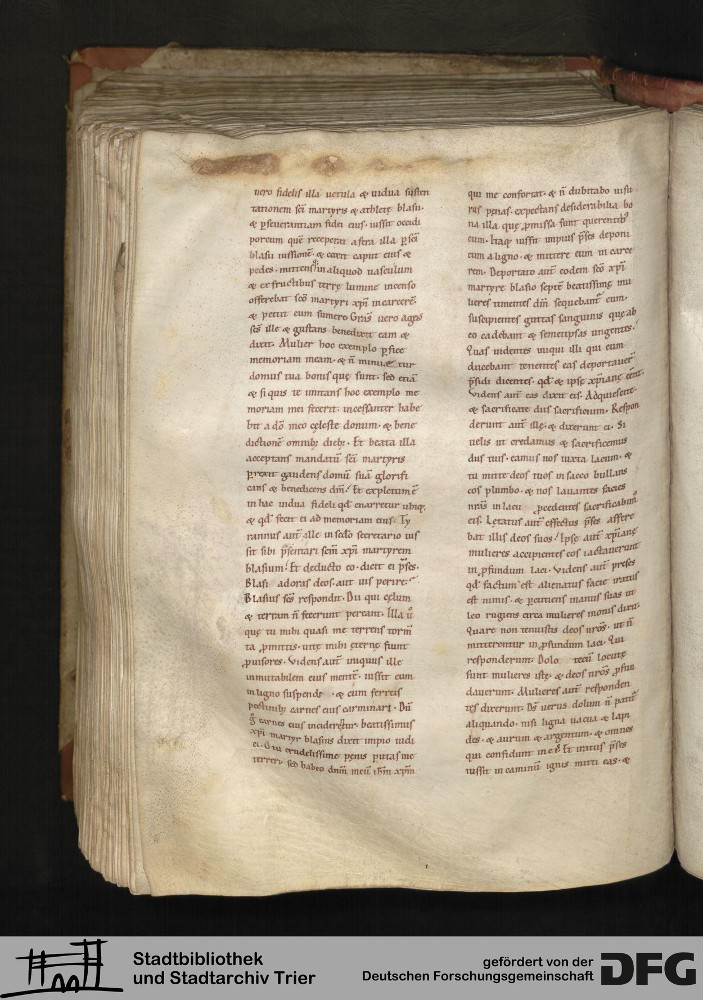 uero fidelis illa uetula & uidua susten
tationem sc̄i martyris & athletę blasii.
& p̄seuerantiam fidei eius. iussit occidi
porcum quē receperat a fera illa p̄ sc̄i
blasii iussionē. & coxit caput eius &
pedes. mittens q; in aliquod uasculum
& ex fructibus terrę lumine incenso
offerebat sc̄o martyri xp̄i in carcerē.
& petiit eum sumere. Gras̄ uero agens
sc̄s ille & gustans benedixit eam &
dixit. Mulier hoc exemplo p̄fice
memoriam meam. & n̄ minuetur
domus tua bonis quę sunt. sed etiā
& si quis te imitans hoc exemplo me
moriam mei fecerit. incessanter habe
bit a dō meo cęleste donum. & bene
dictionē omnib; dieb;. Et beata illa
acceptans mandatū sc̄i martyris
p̄rexit gaudens domū suā glorifi
cans & benedicens dm̄. Et expletum ē
in hac uidua fideli qd̄ enarretur
& qd̄ fecit ei ad memoriam eius. Ty
rannus aut̄ ille in sedo secretario ius
sit sibi p̄sentari sc̄m xp̄i martyrem
blasium. Et deducto eo. dicit ei p̄ses.
Blasi adoras deos. aut uis perire.
Blasius sc̄s respondit. Dii qui cęlum
& terram n̄ fecerunt pereant. Illa ū
quę tu mihi quasi me terrens torm̄
ta p̄mittis. uitę mihi ęternę fiunt
p̄uisores. Videns aut̄ iniquus ille
inmutabilem eius mentē. iussit eum
in ligno suspendi. & cum ferreis
pectinib; carnes eius carminari. Dū
g̊ carnes eius inciderētur. beatissimus
xp̄i martyr blasius dixit impio iudi
ci. O tu crudelissime penis putas me
terrere. sed habeo dnm̄ meū ihm̄ xpm̄
qui me confortat. & n̄ dubitabo uisu
ras penas. expectans desiderabilia bo
na illa quę p̄missa sunt querentib;
eum. Itaq; iussit impius p̄ses deponi
eum a ligno. & mittere eum in carce
rem. Deportato aut̄ eodem sc̄o xp̄i
martyre blasio septē beatissimę mu
lieres timentes dm̄ sequebant̄ eum.
suscipientes guttas sanguinis quę ab
eo cadebant & semetipsas ungentes.
Quas uidentes iniqui illi qui eum
ducebant tenentes eas deportauer̄
p̄sidi dicentes. qd̄ & ipsę xp̄ianę eēnt.
Videns aut̄ eas dixit eis. Adquiescite
& sacrificate diis sacrificium. Respon
derunt aut̄ illę. & dixerunt ei. Si
uelis ut credamus & sacrificemus
diis tuis. eamus nos iuxta lacum. &
tu mitte deos tuos in sacco bullans
eos plumbo. & nos lauantes facies
nrās in lacu p̄cedentes sacrificabim̄
eis. Lętatus aut̄ effectus p̄ses affere
bat illis deos suos. Ipsę aut̄ xp̄ianę
mulieres accipientes eos iactauerunt
in p̄fundum laci. Videns aut̄ preses
qd̄ factum est alienatus facie iratus
est nimis. & p̄cutiens manus suas ut
leo rugiens circa mulieres monis dixit.
Quare non tenuistis deos nrōs. ut n̄
mitterentur in p̄fundum laci. Qui
responderunt. Dolo tecū locutę
sunt mulieres istę. & deos nrōs p̄fun
dauerunt. Mulieres aut̄ responden
tes dixerunt. Ds̄ uerus dolum n̄ patit̄
aliquando. nisi ligna uacua & lapi
des. & aurum & argentum. & omnes
qui confidunt in eis. Et iratus p̄ses
iussit in caminū ignis mitti eas. &
Stadtbibliothek
und Stadtarchiv Trier
gefördert von der
Deutschen Forschungsgemeinschaft
DFG